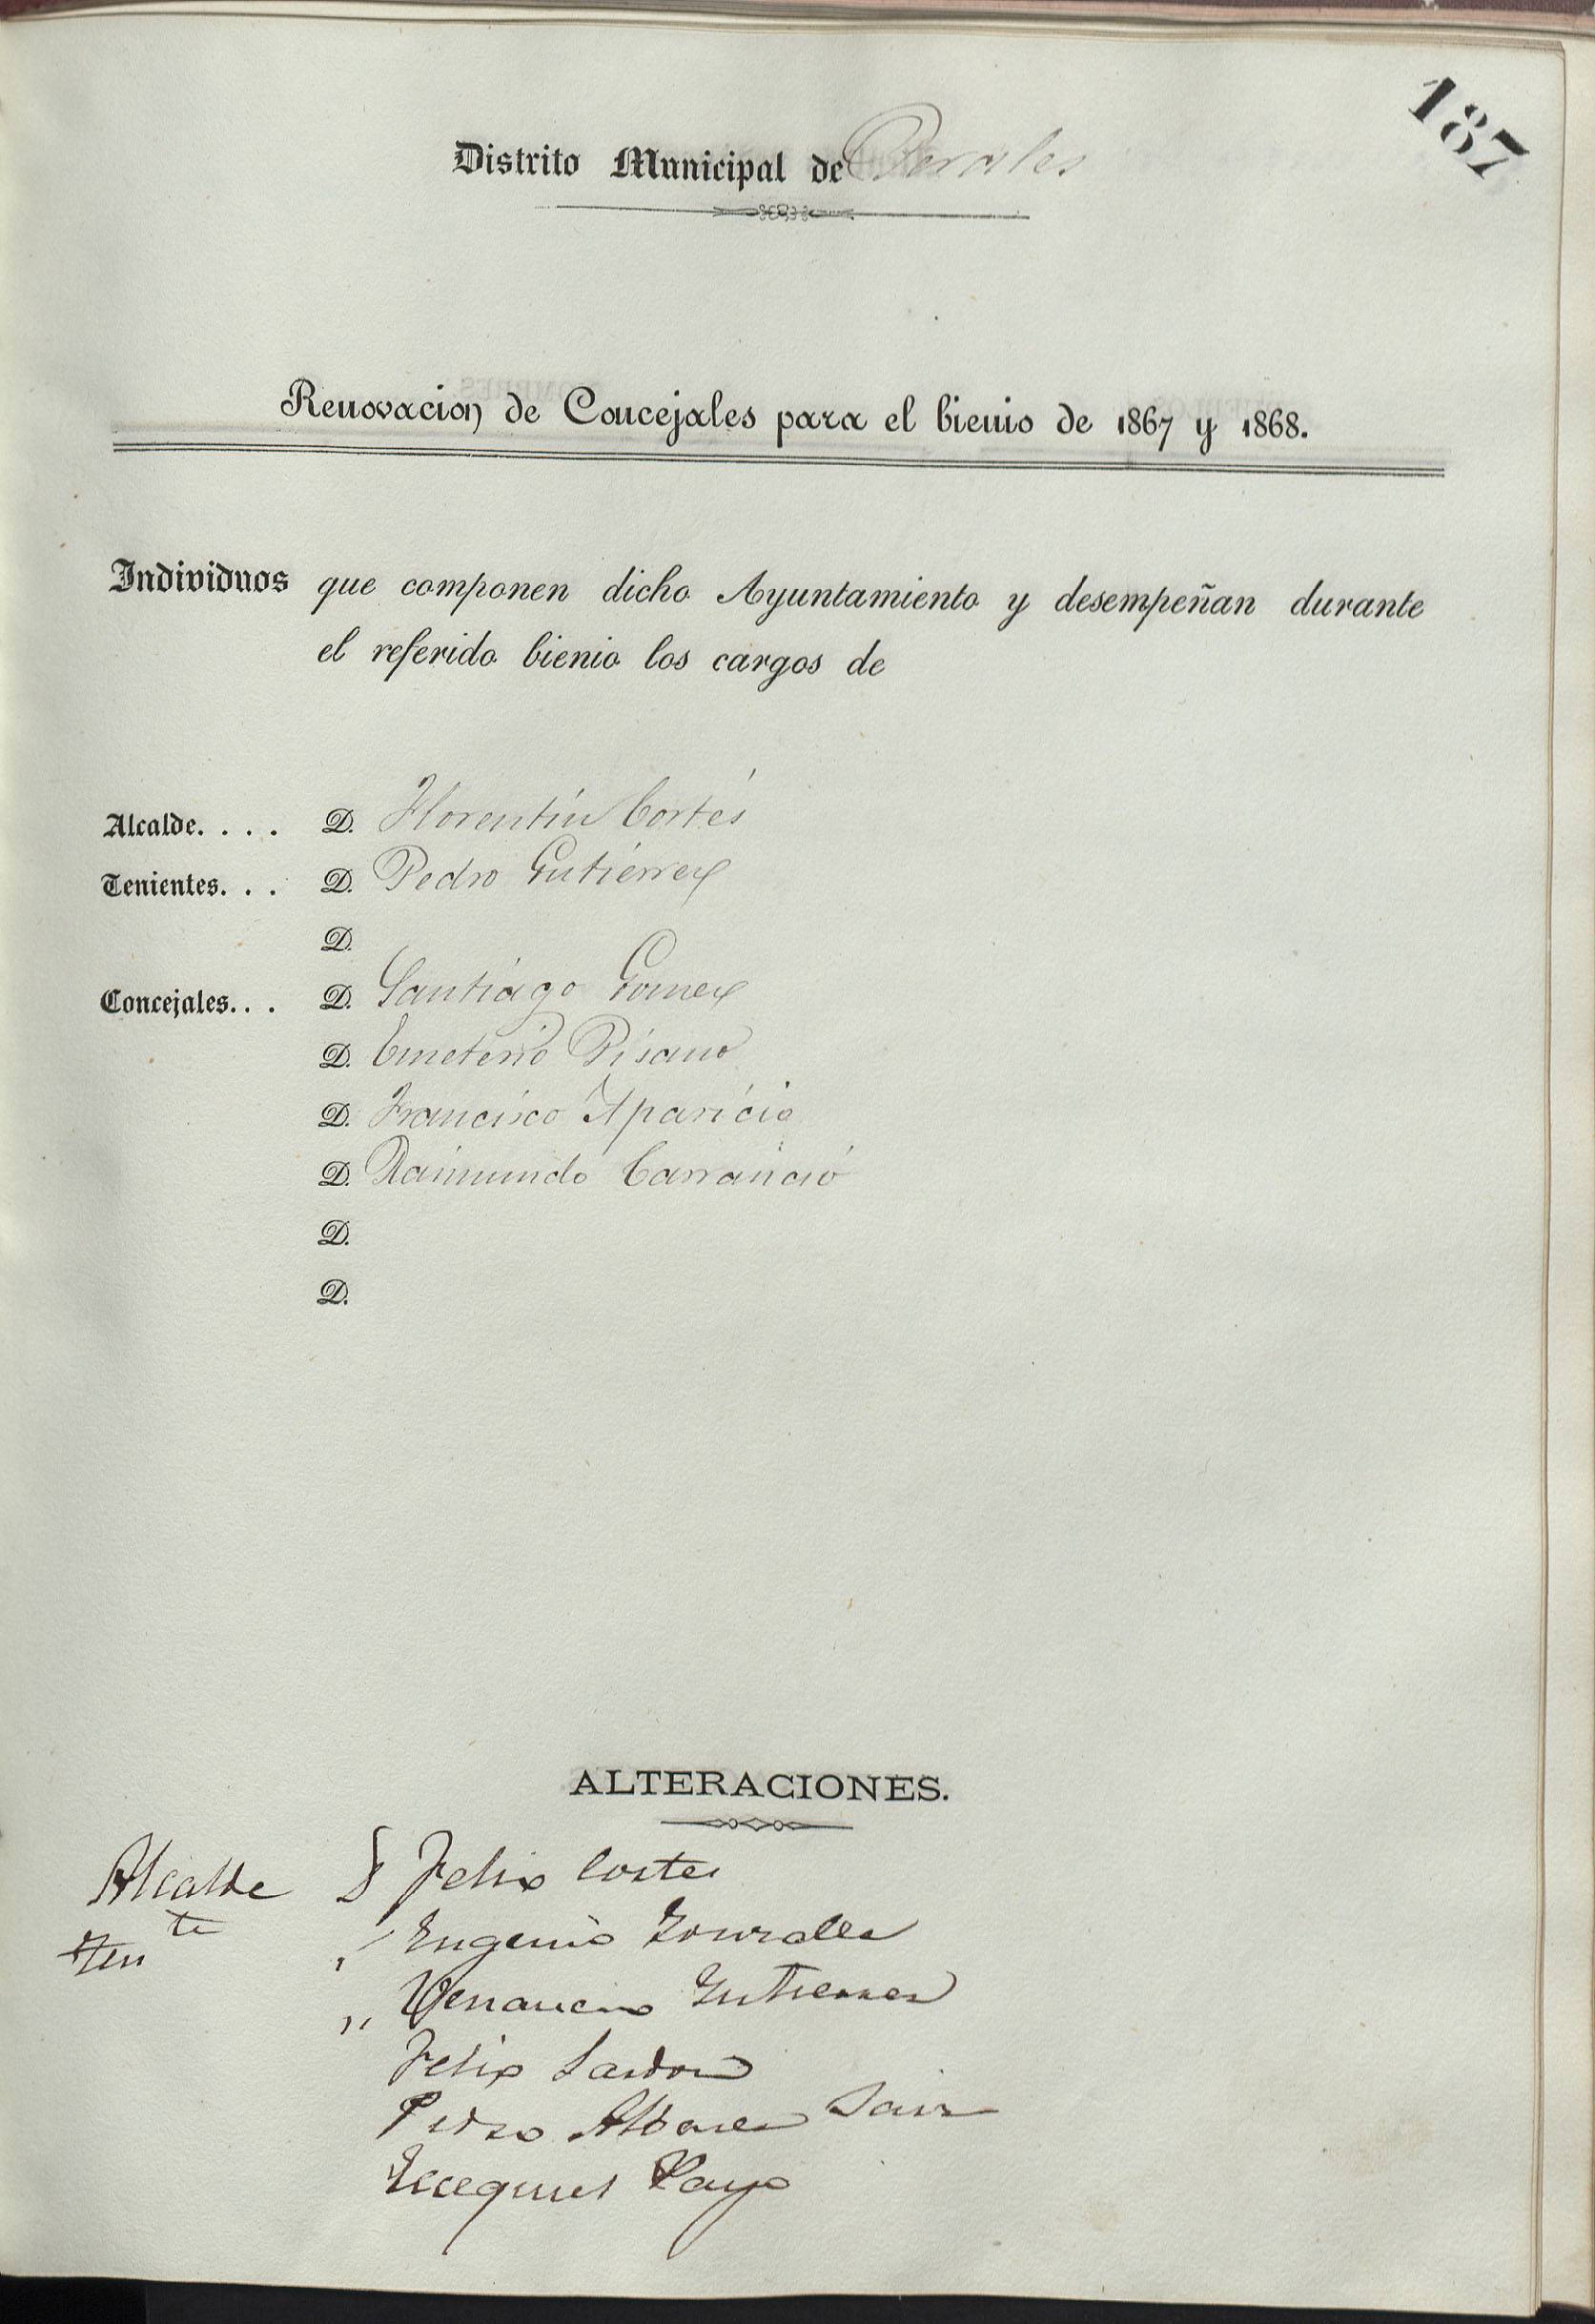 187
Distrito Municipal de Perales
Renovacion de Concejales para el bienio de 1867 y 1868.
Individuos que componen dicho Ayuntamiento y desempeñan durante
el referido bienio los cargos de
Alcalde. . . . D. Florentin Cortés
Tenientes. . . D. Pedro Gutierrez
D.
Concejales. . . D. Santiago Gomez
D. Emeterio Pisano
D. Francisco Aparicio
D. Raimundo Carrancio
D.
D.
ALTERACIONES.
Alcalde D Felix Cortes
Tente " Eugenio Gonzalez
" Venancio Gutierrez
Felix Sardon
Pedro Albarez Saiz
Ecequiel Payo